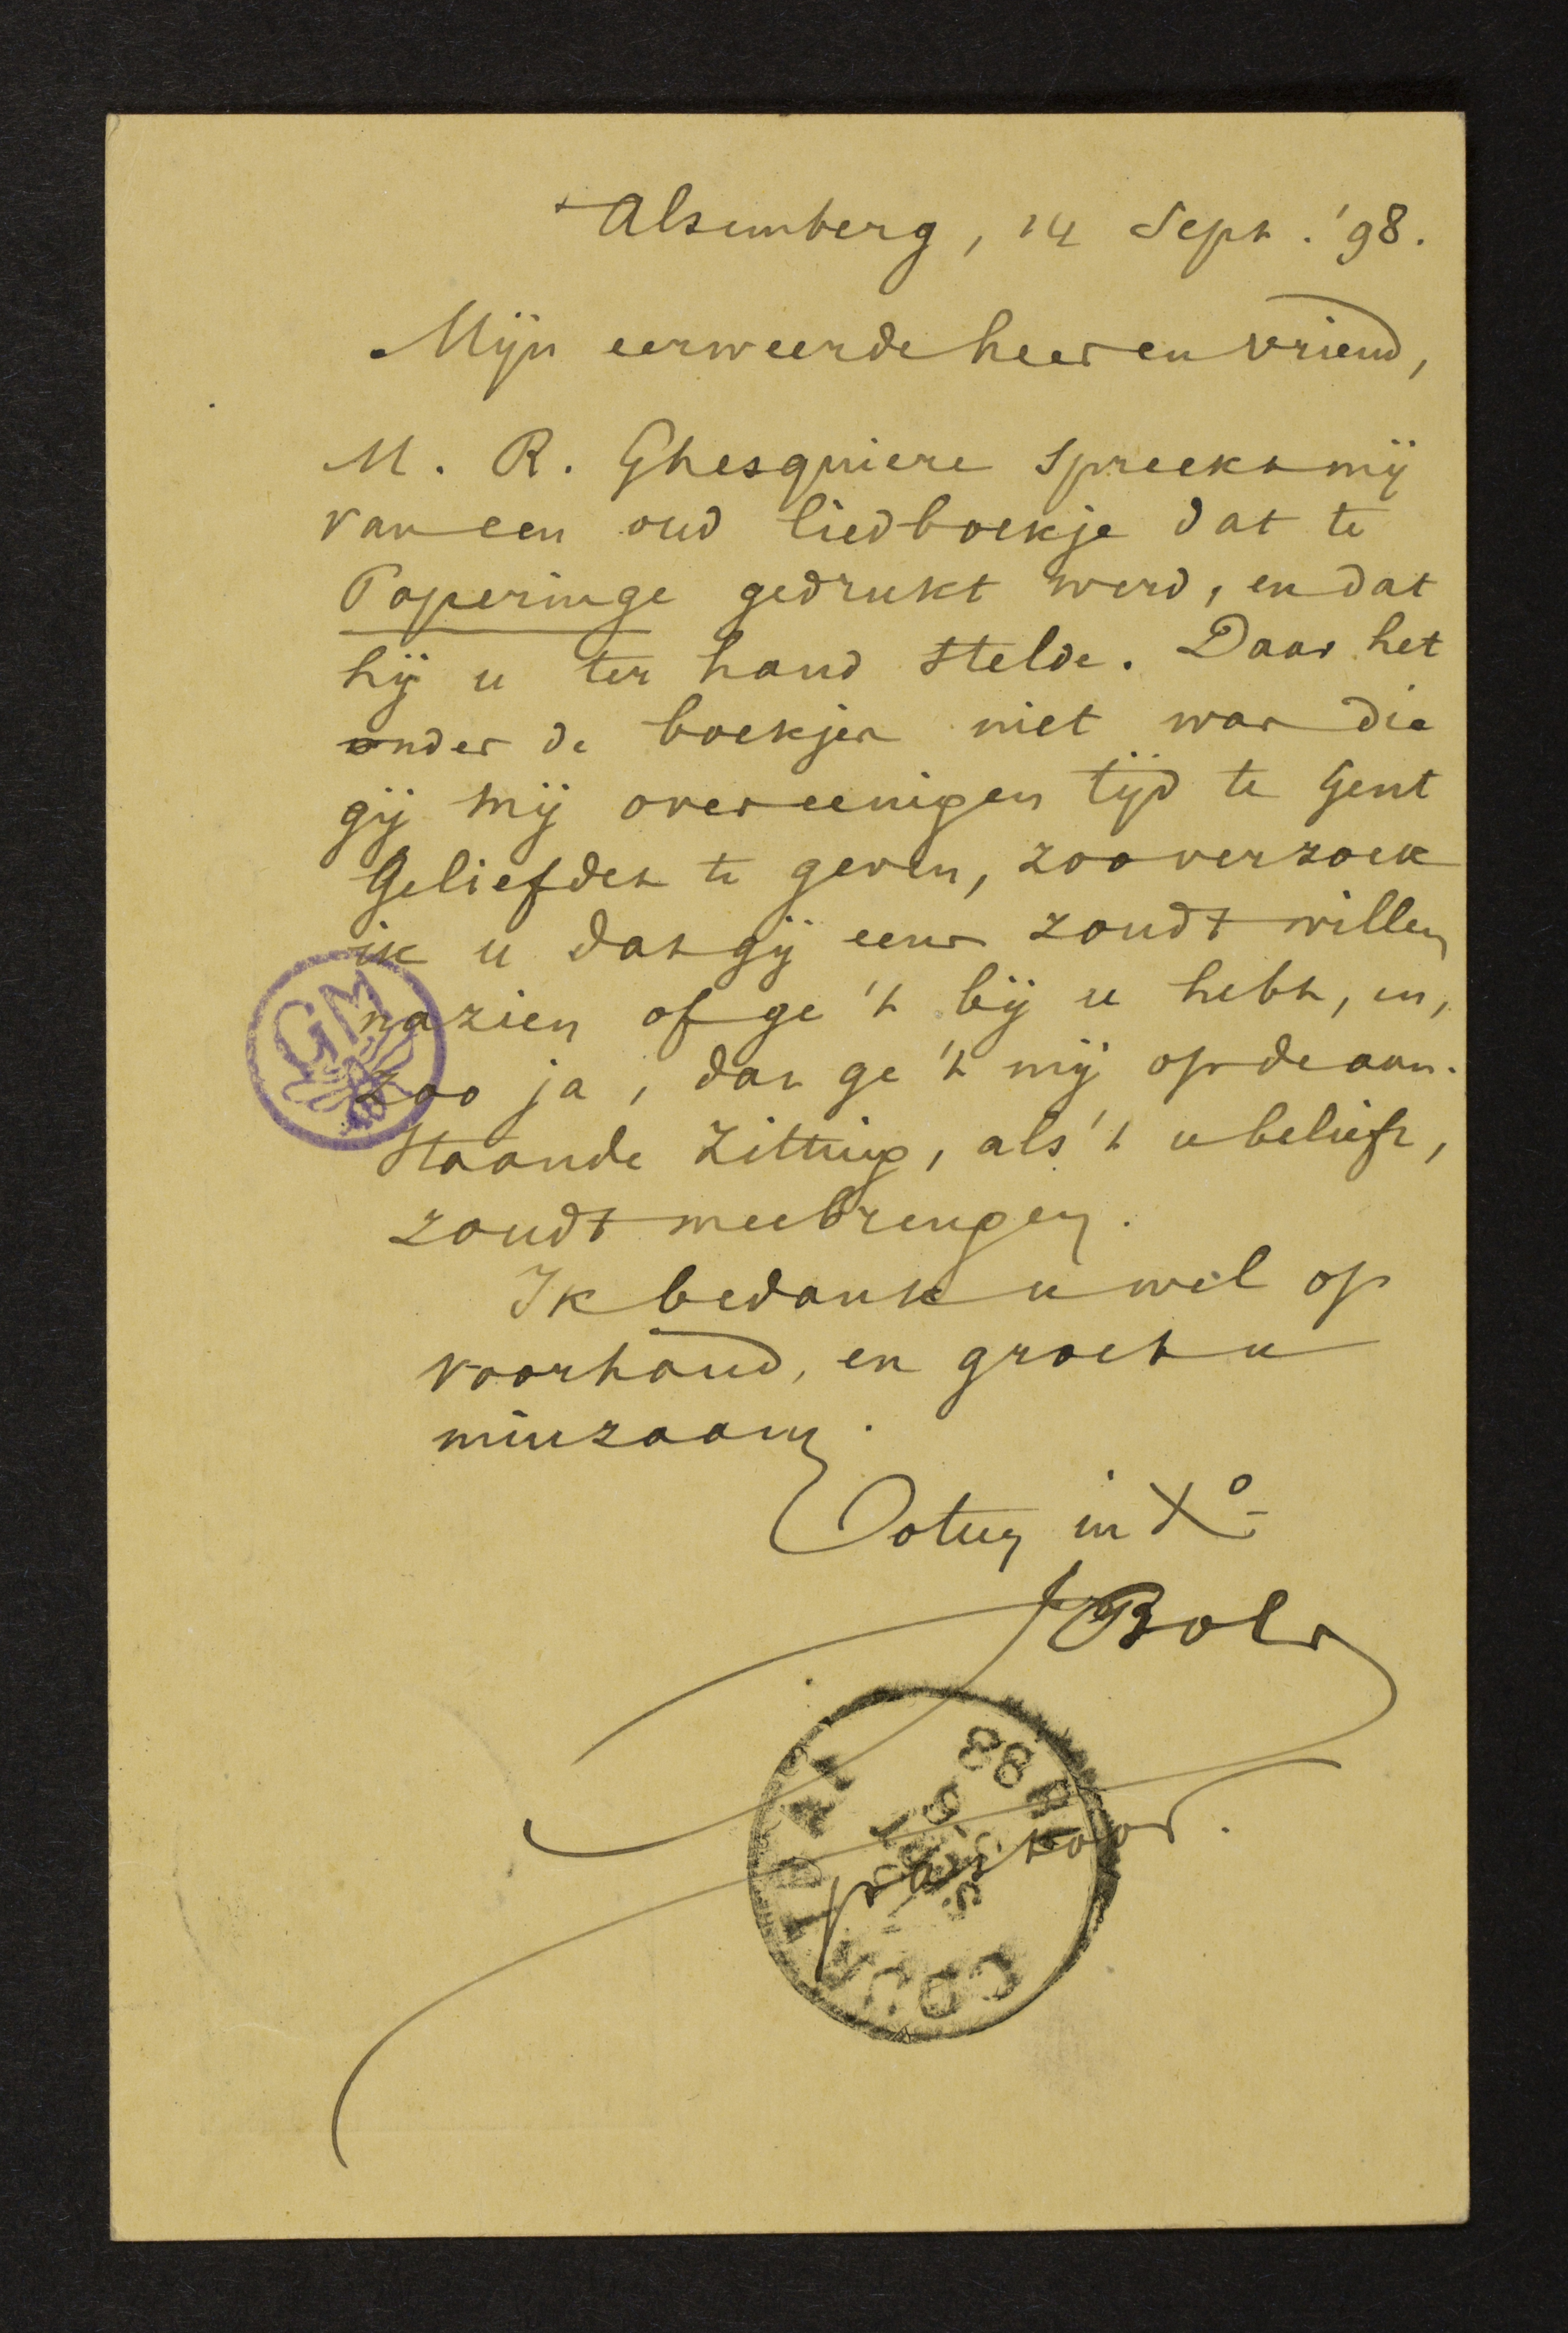 + Alsemberg, 14 Sept. '98.
Mijn eerweerde heer en vriend,
M. R. Ghesquiere spreekt mij
van een oud liedboekje dat te
Poperinge gedrukt werd, en dat
hij u ter hand stelde. Daar het
onder de boekjes niet was die
gij mij over eenigen tijd te Gent
geliefdet te geven, zoo verzoek
ik u dat gij eens zoudt willen
nazien of ge 't bij u hebt, en,
zoo ja, dat ge 't mij op de aan-
staande zitting, als 't u belieft,
zoudt meebrengen.
Ik bedank u wel op
voorhand, en groet u
minzaam.
Totus in Xo
J Bols
pastoor.
GM
COURTRAI
SEPT